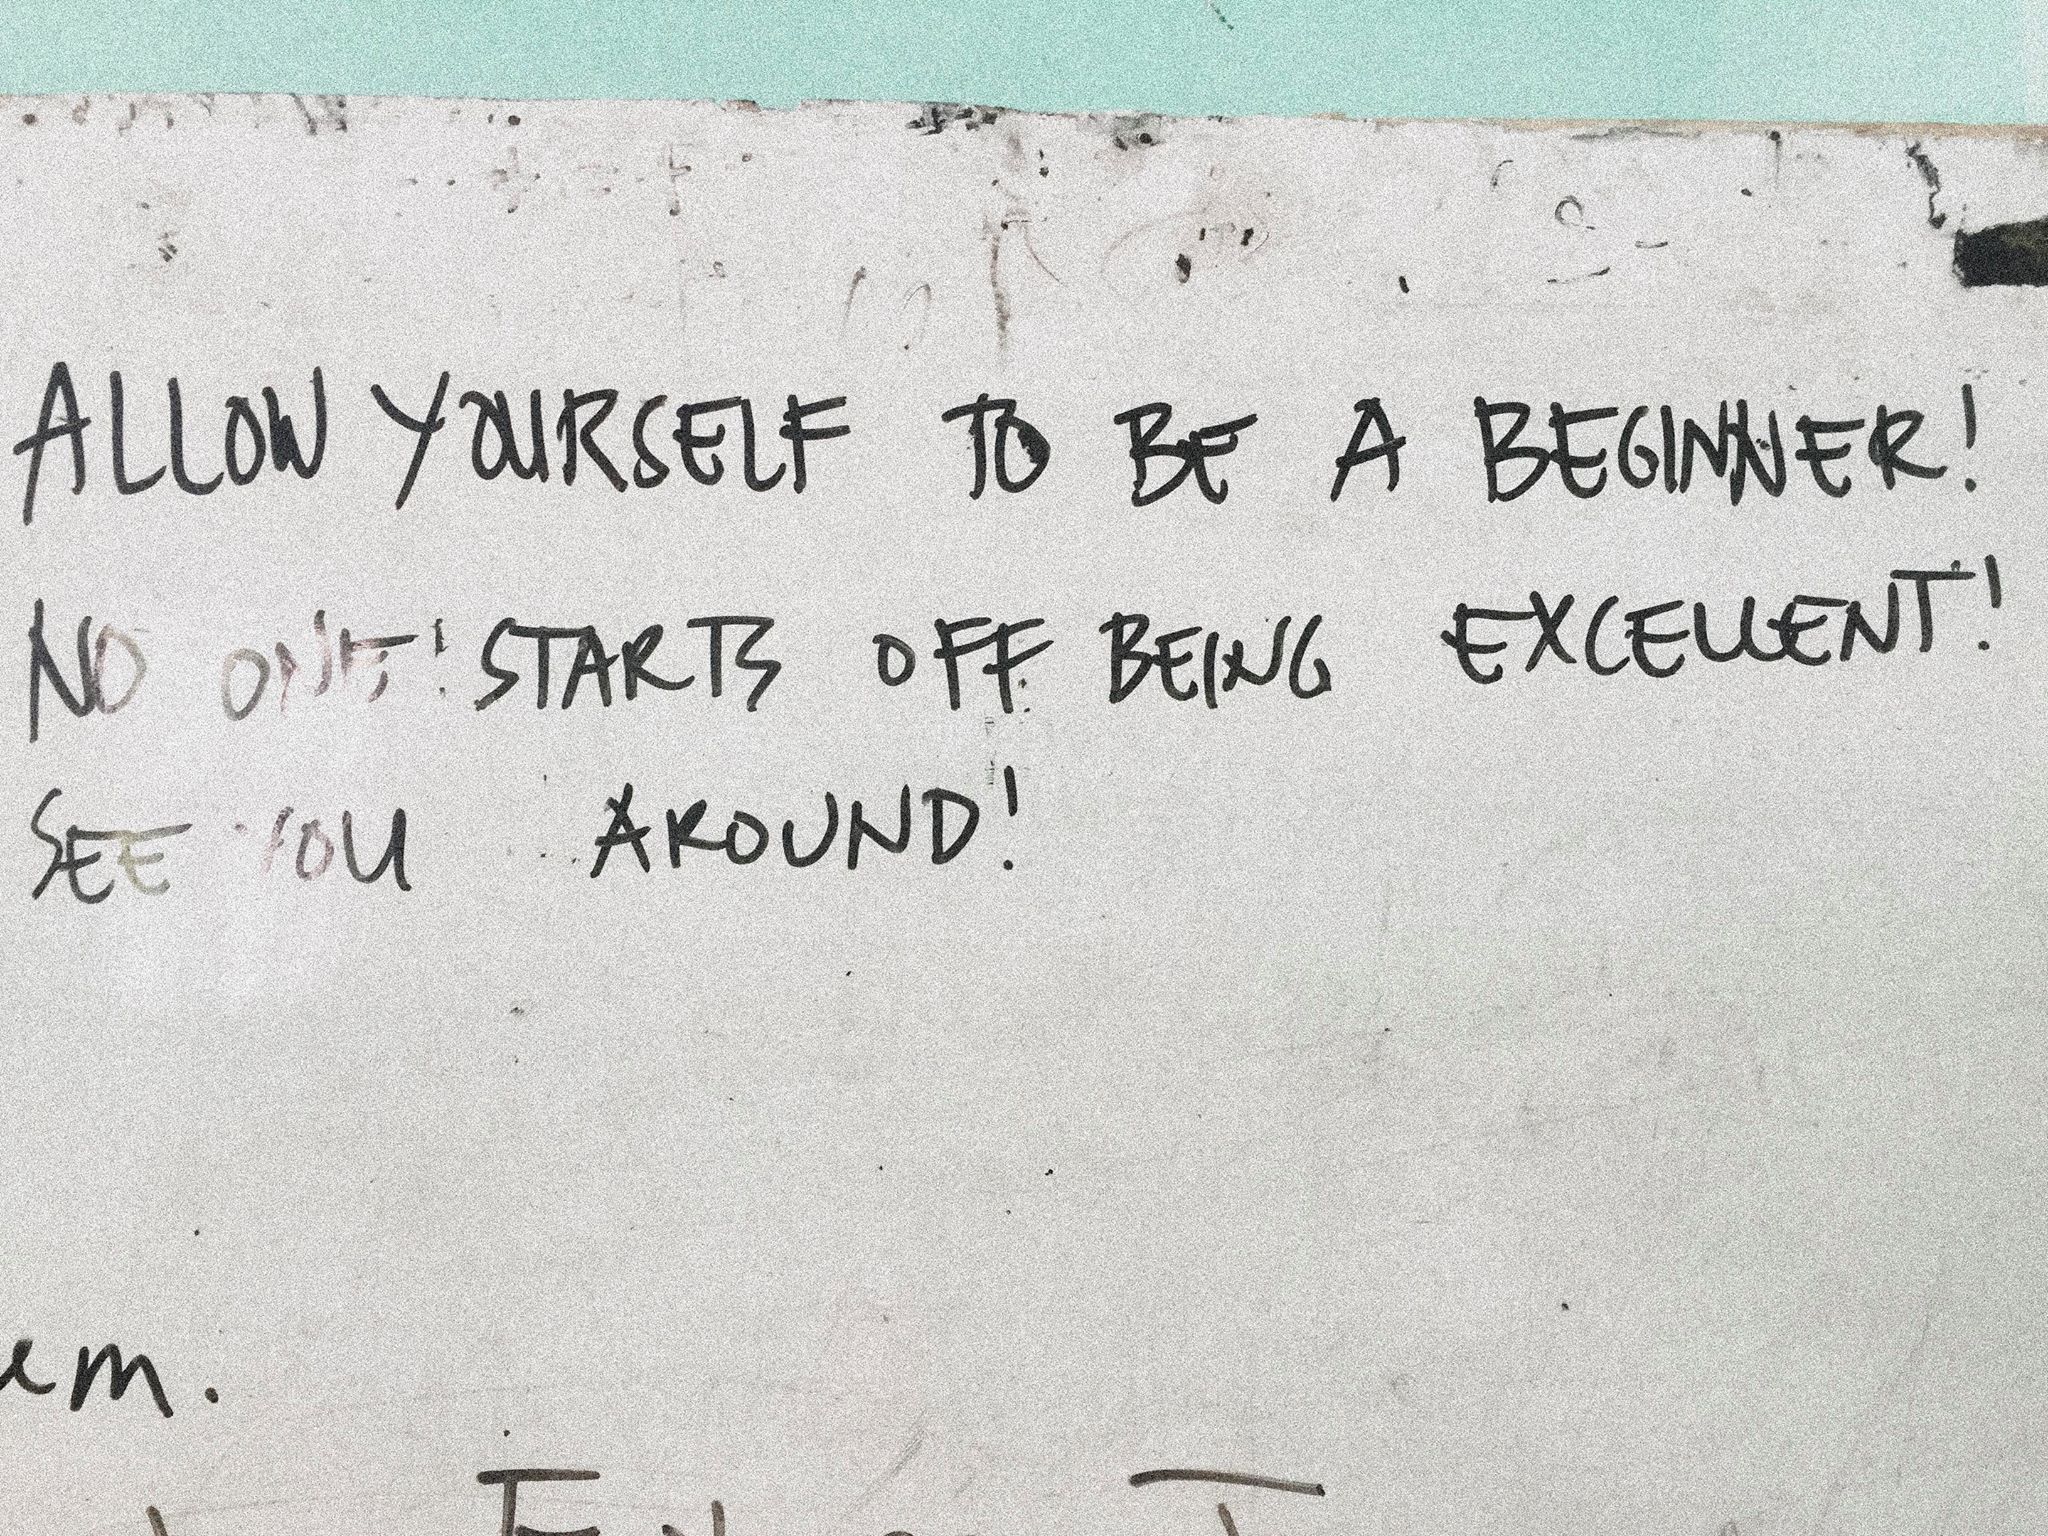 ALLOW YOURSELF TO BE A BEGINNER!
NO ONE STARTS OFF BEING EXCELLENT!
SEE YOU AROUND!
em.